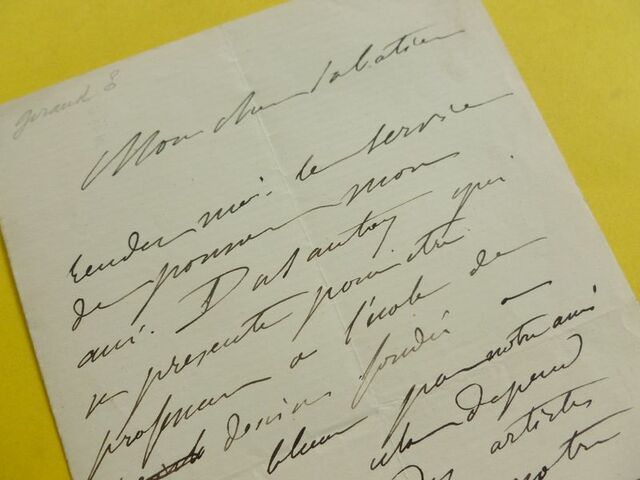 giraud E
Mon cher Sabatier
rendez moi le service
de pousser mon
ami. Dusautoy qui
se presente pour être
professeur a l'école de
dessins fondée a
par notre ami
cela depend
artistes
notre